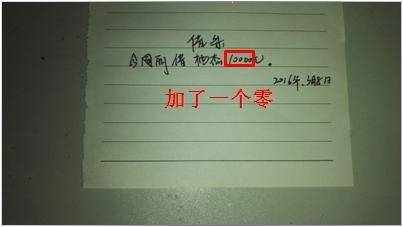 借条
今周丽借 10000元。
2016年.3月8日
加了一个零